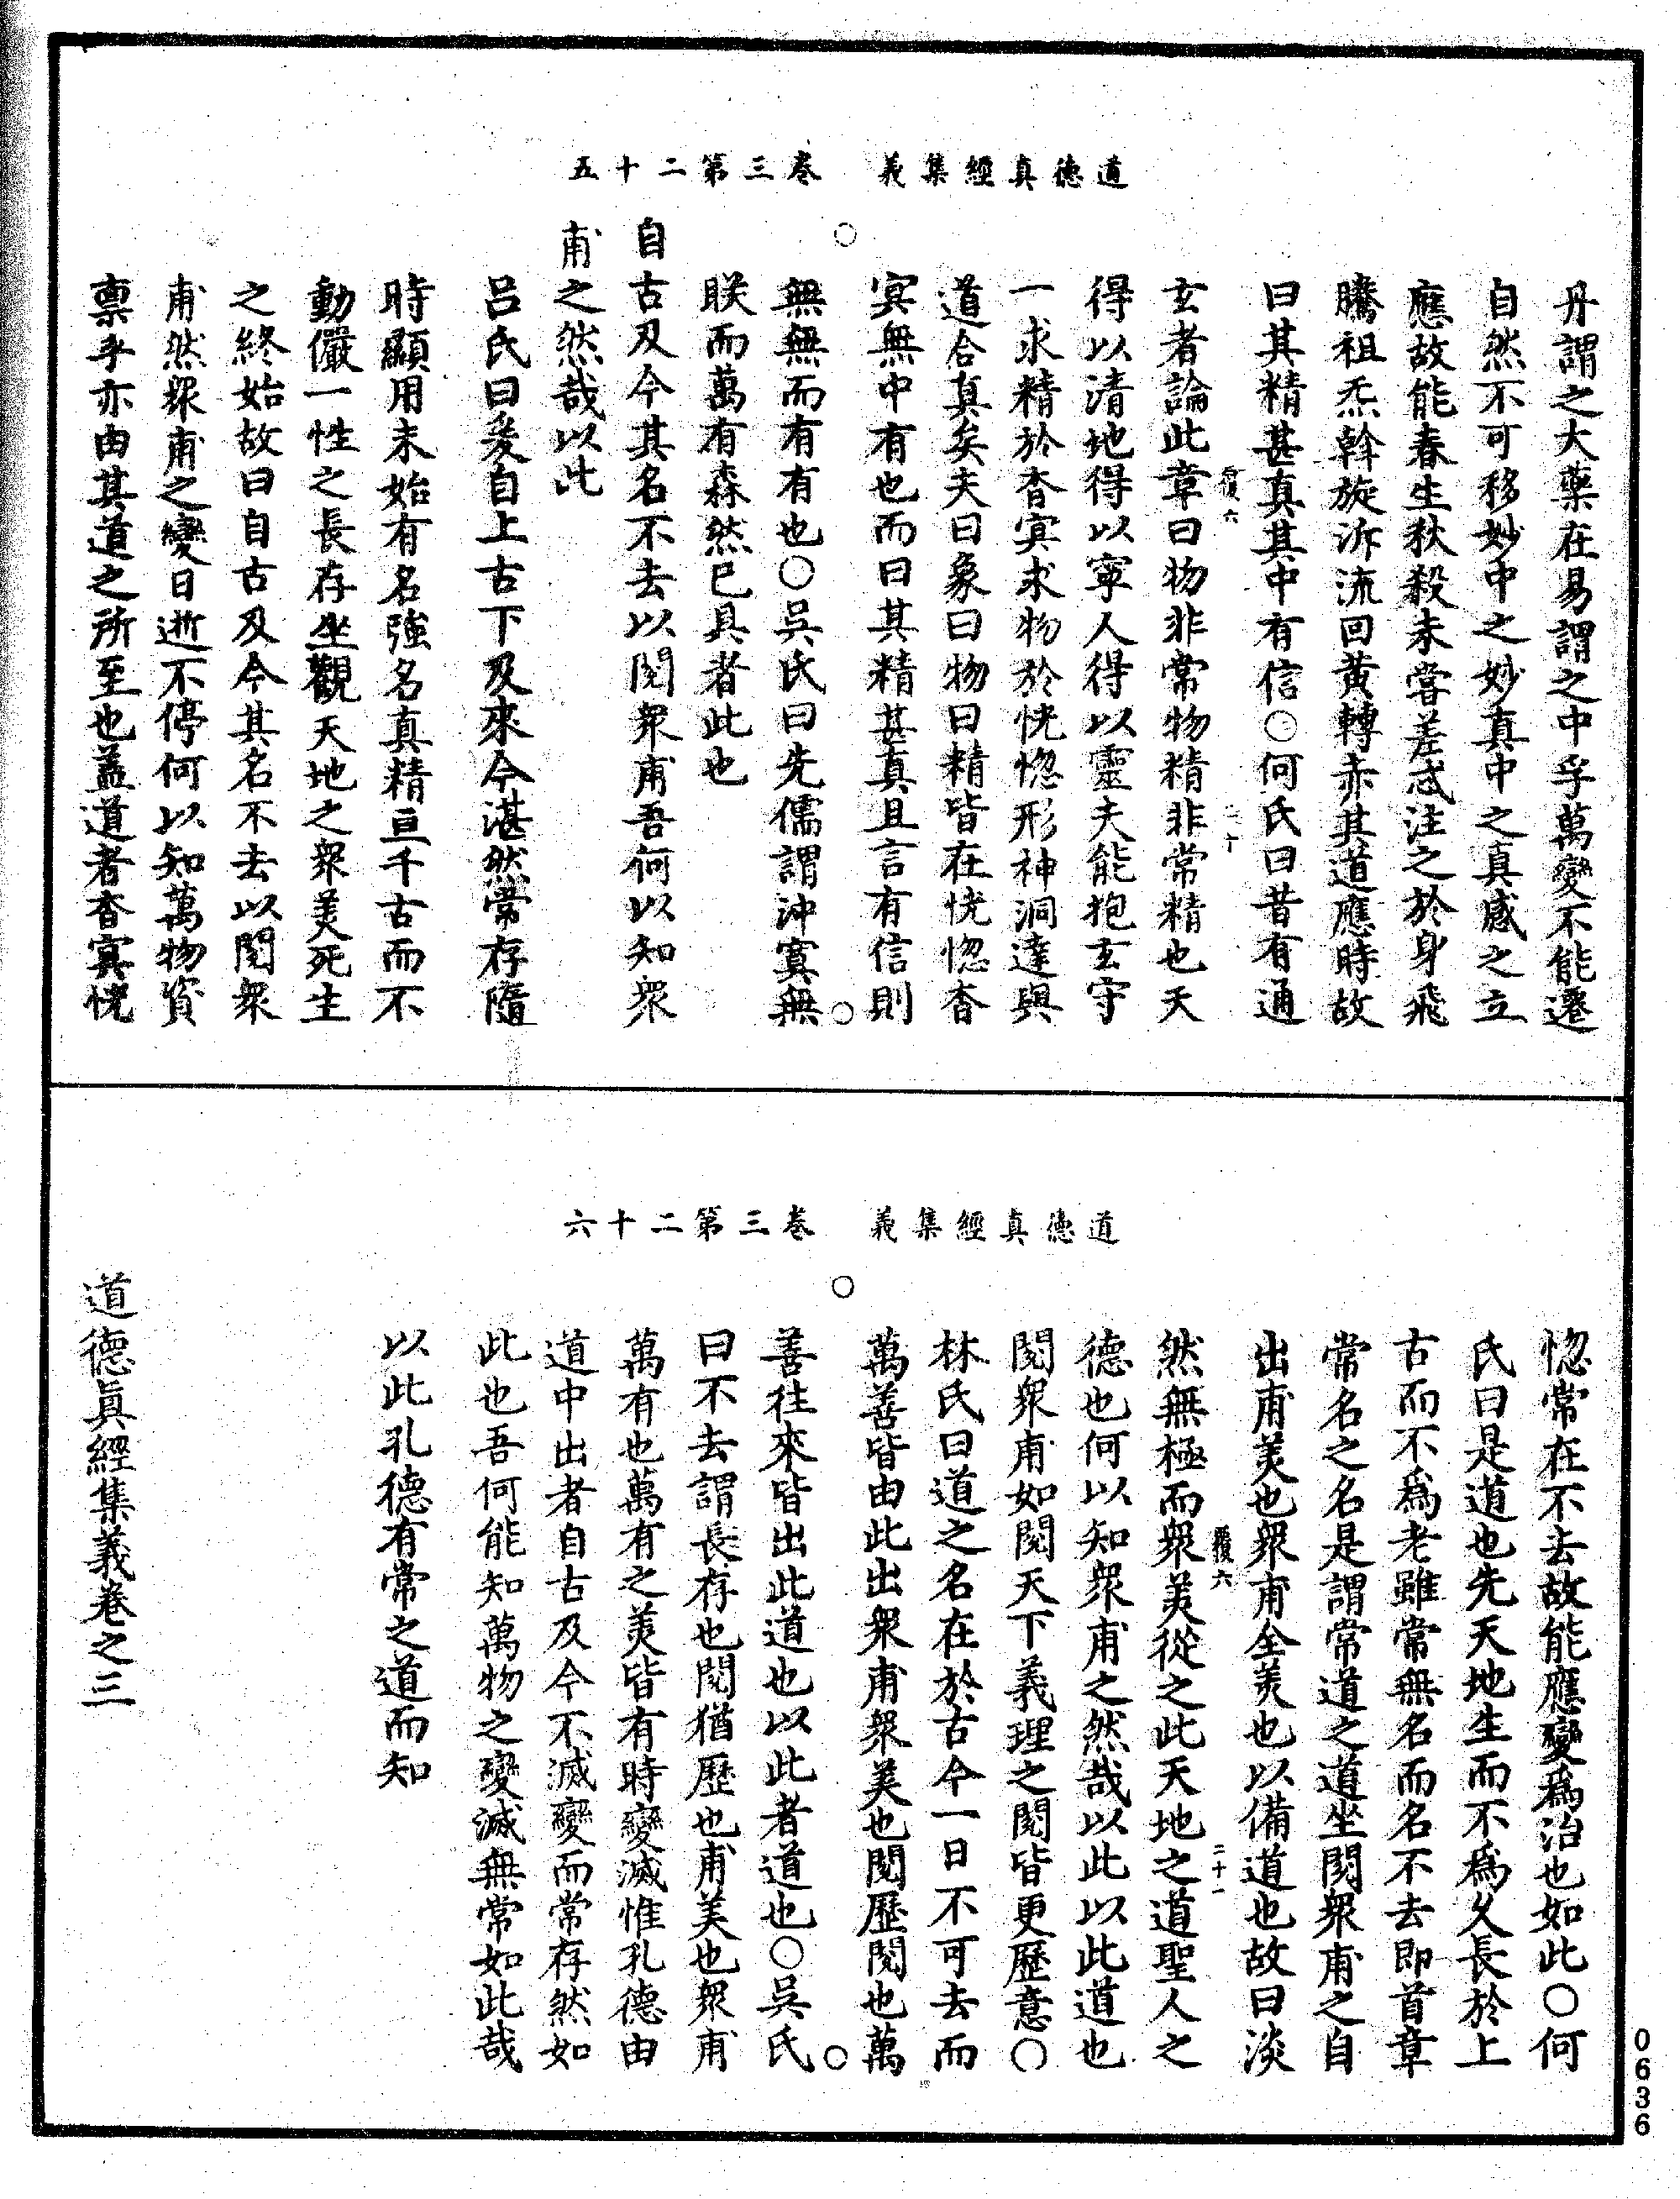 道德真經集義　卷三第二十五
丹謂之大藥在易謂之中孚萬變不能遷
自然不可移妙中之妙真中之真感之立
應故能春生秋殺未嘗差忒注之於身飛
騰祖炁斡旋泝流回黃轉赤其道應時故
曰其精甚真其中有信○何氏曰昔有通
玄者論此章曰物非常物精非常精也天
得以清地得以寧人得以靈夫能抱玄守
一求精於杳冥求物於恍惚形神洞達與
道合真矣夫曰象曰物曰精皆在恍惚杳
冥無中有也而曰其精甚真且言有信則
無無而有有也○吳氏曰先儒謂沖寞無
朕而萬有森然已具者此也
自古及今其名不去以閱衆甫吾何以知衆
甫之然哉以此
呂氏曰爰自上古下及來今湛然常存隨
時顯用未始有名強名真精亘千古而不
動儼一性之長存坐觀天地之衆美死生
之終始故曰自古及今其名不去以閱衆
甫然衆甫之變日逝不停何以知萬物資
禀乎亦由其道之所至也蓋道者杳冥恍
道德真經集義　卷三第二十六
惚常在不去故能應變爲治也如此○何
氏曰是道也先天地生而不爲久長於上
古而不爲老雖常無名而名不去即首章
常名之名是謂常道之道坐閱衆甫之自
出甫美也衆甫全美也以備道也故曰淡
然無極而衆美從之此天地之道聖人之
德也何以知衆甫之然哉以此以此道也
閱衆甫如閱天下義理之閱皆更歷意○
林氏曰道之名在於古今一日不可去而
萬善皆由此出衆甫衆美也閱歷閱也萬
善往來皆出此道也以此者道也○吳氏
曰不去謂長存也閱猶歷也甫美也衆甫
萬有也萬有之美皆有時變滅惟孔德由
道中出者自古及今不滅變而常存然如
此也吾何能知萬物之變滅無常如此哉
以此孔德有常之道而知
道德真經集義卷之三
0636